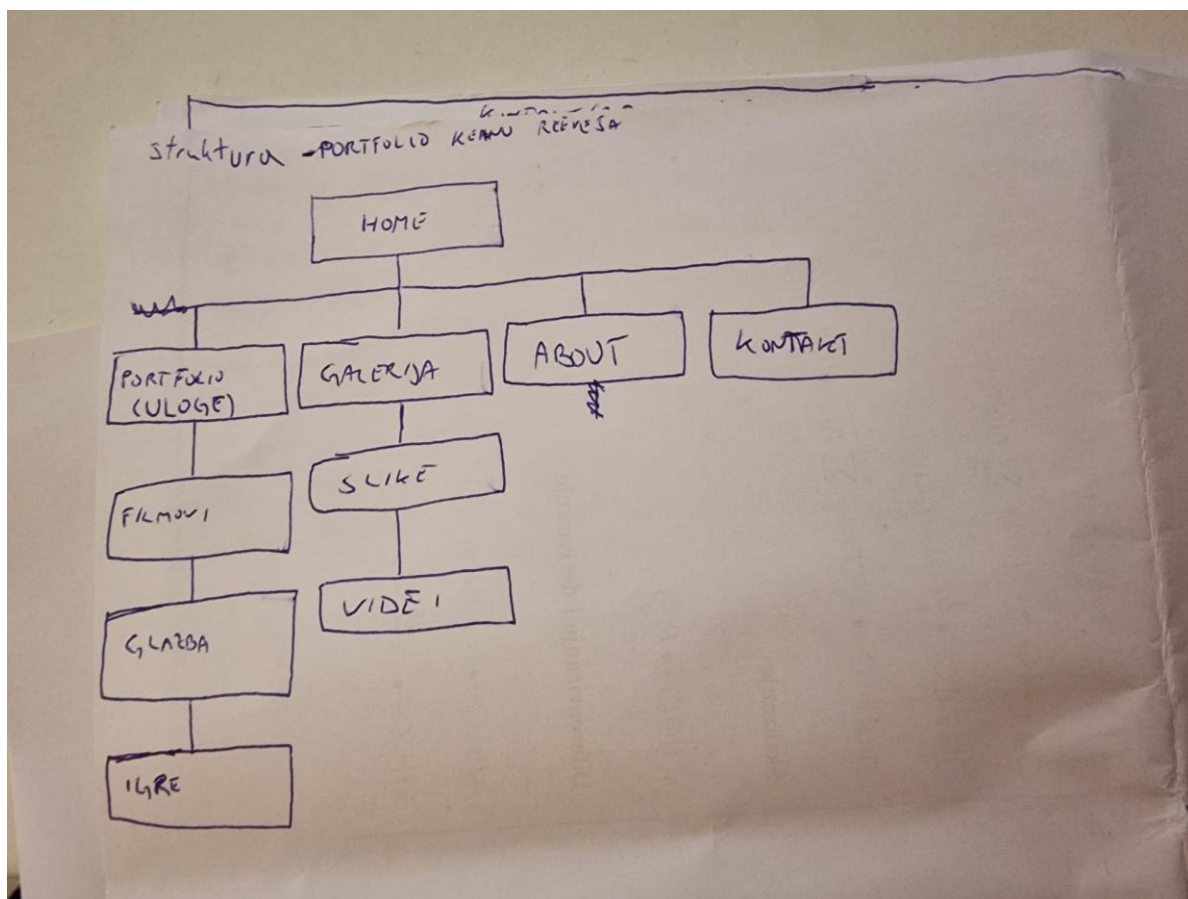 struktura - PORTFOLIO KEANU REEVESA
HOME
PORTFOLIO
(ULOGE)
GALERIJA
ABOUT
KONTAKT
FILMOVI
SLIKE
GLAZBA
VIDEI
IGRE